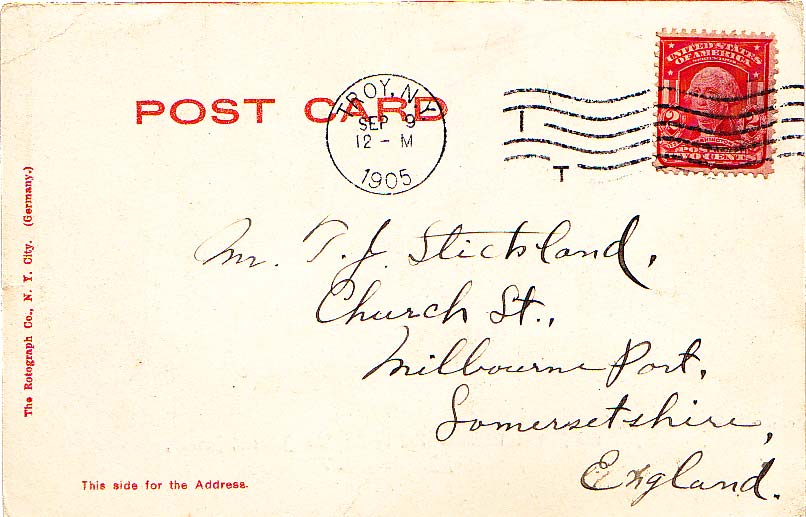 UNITED STATES
OF AMERICA
POST CARD
TROY, N.Y.
SEP 9
12 - M
1905
I
T
2
TWO CENTS
Mr. T. J. Stickland,
Church St.,
Milbourne Port,
Somersetshire,
England.
The Rotograph Co., N. Y. City. (Germany.)
This side for the Address.